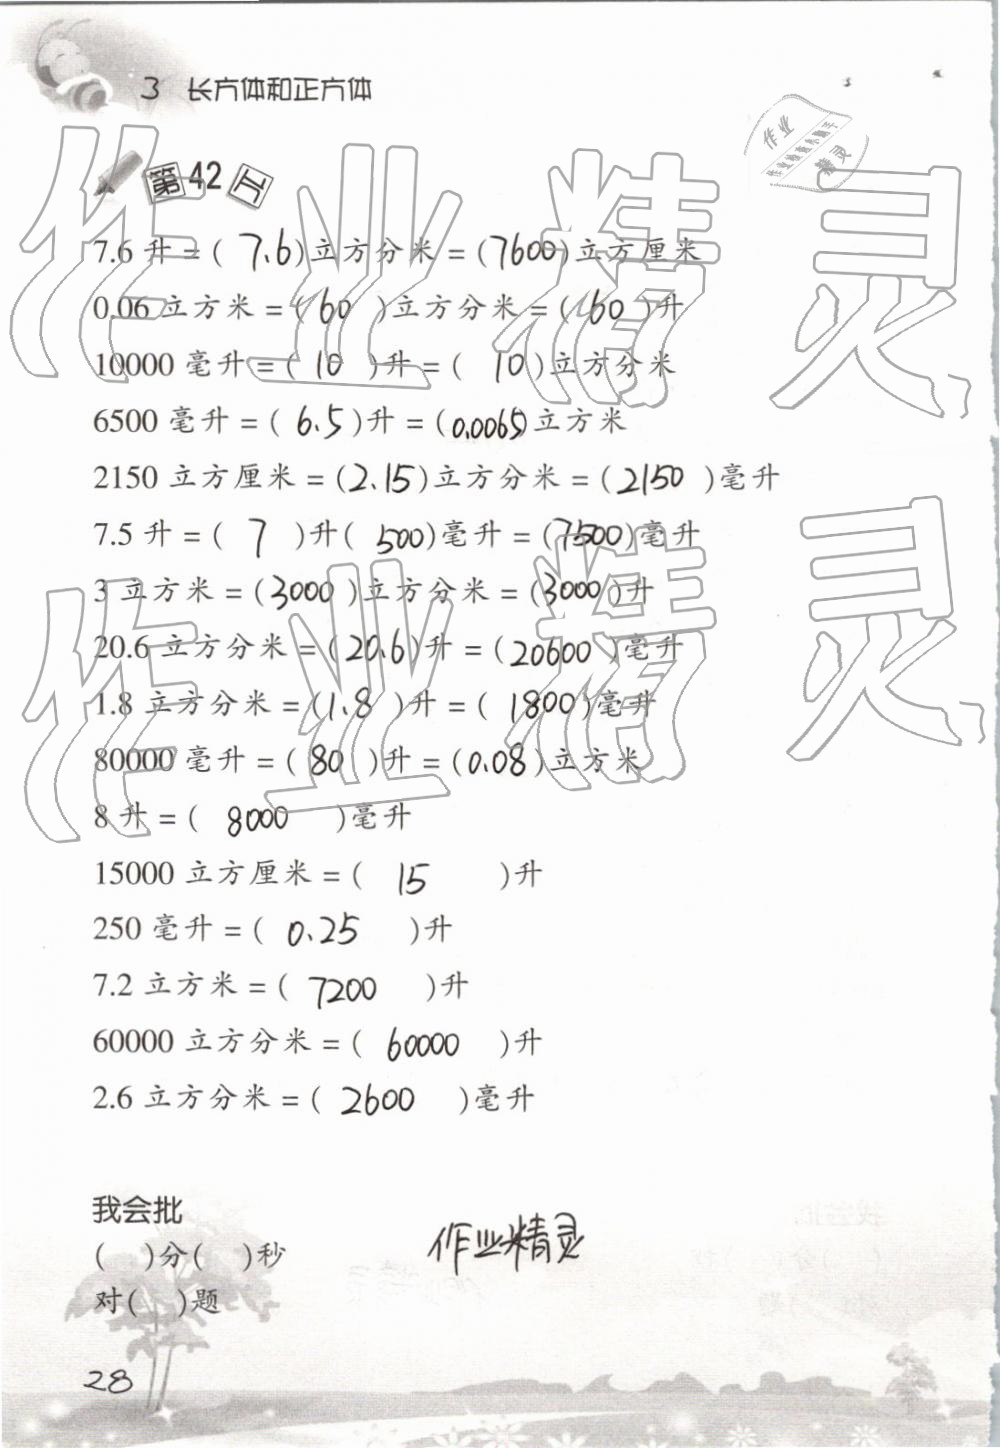 3 长方体和正方体
作业
作业检查小助手
精灵
第42页
7.6升=(7.6)立方分米=(7600)立方厘米
0.06立方米=(60)立方分米=(60)升
10000毫升=(10)升=(10)立方分米
6500毫升=(6.5)升=(0.0065)立方米
2150立方厘米=(2.15)立方分米=(2150)毫升
7.5升=(7)升(500)毫升=(7500)毫升
3立方米=(3000)立方分米=(3000)升
20.6立方分米=(20.6)升=(20600)毫升
1.8立方分米=(1.8)升=(1800)毫升
80000毫升=(80)升=(0.08)立方米
8升=(8000)毫升
15000立方厘米=(15)升
250毫升=(0.25)升
7.2立方米=(7200)升
60000立方分米=(60000)升
2.6立方分米=(2600)毫升
作业精灵
作业精灵
我会批
( )分( )秒
对( )题
作业精灵
28